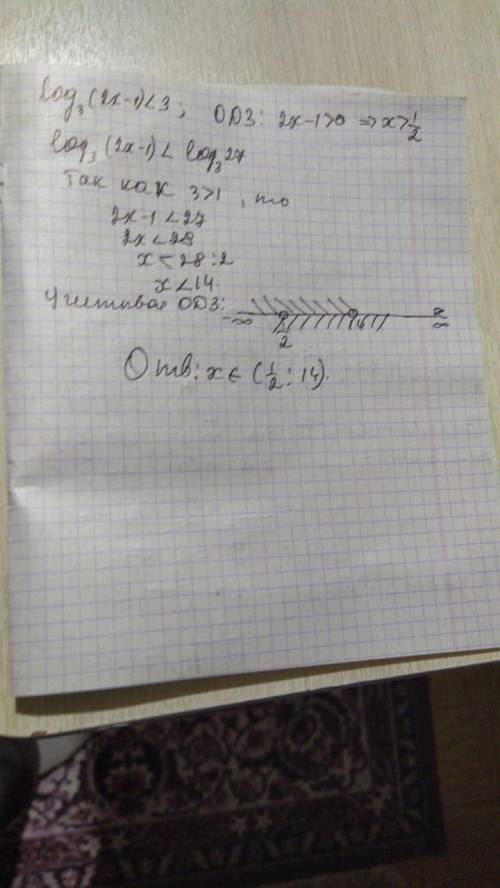 log₃(2x-1)<3; ОДЗ: 2x-1>0 => x>1/2
log₃(2x-1)<log₃27
Так как 3>1, то
2x-1<27
2x<28
x<28:2
x<14.
Учитывая ОДЗ:
-∞ 1/2 14 x ∞
Отв: x∈(1/2; 14).